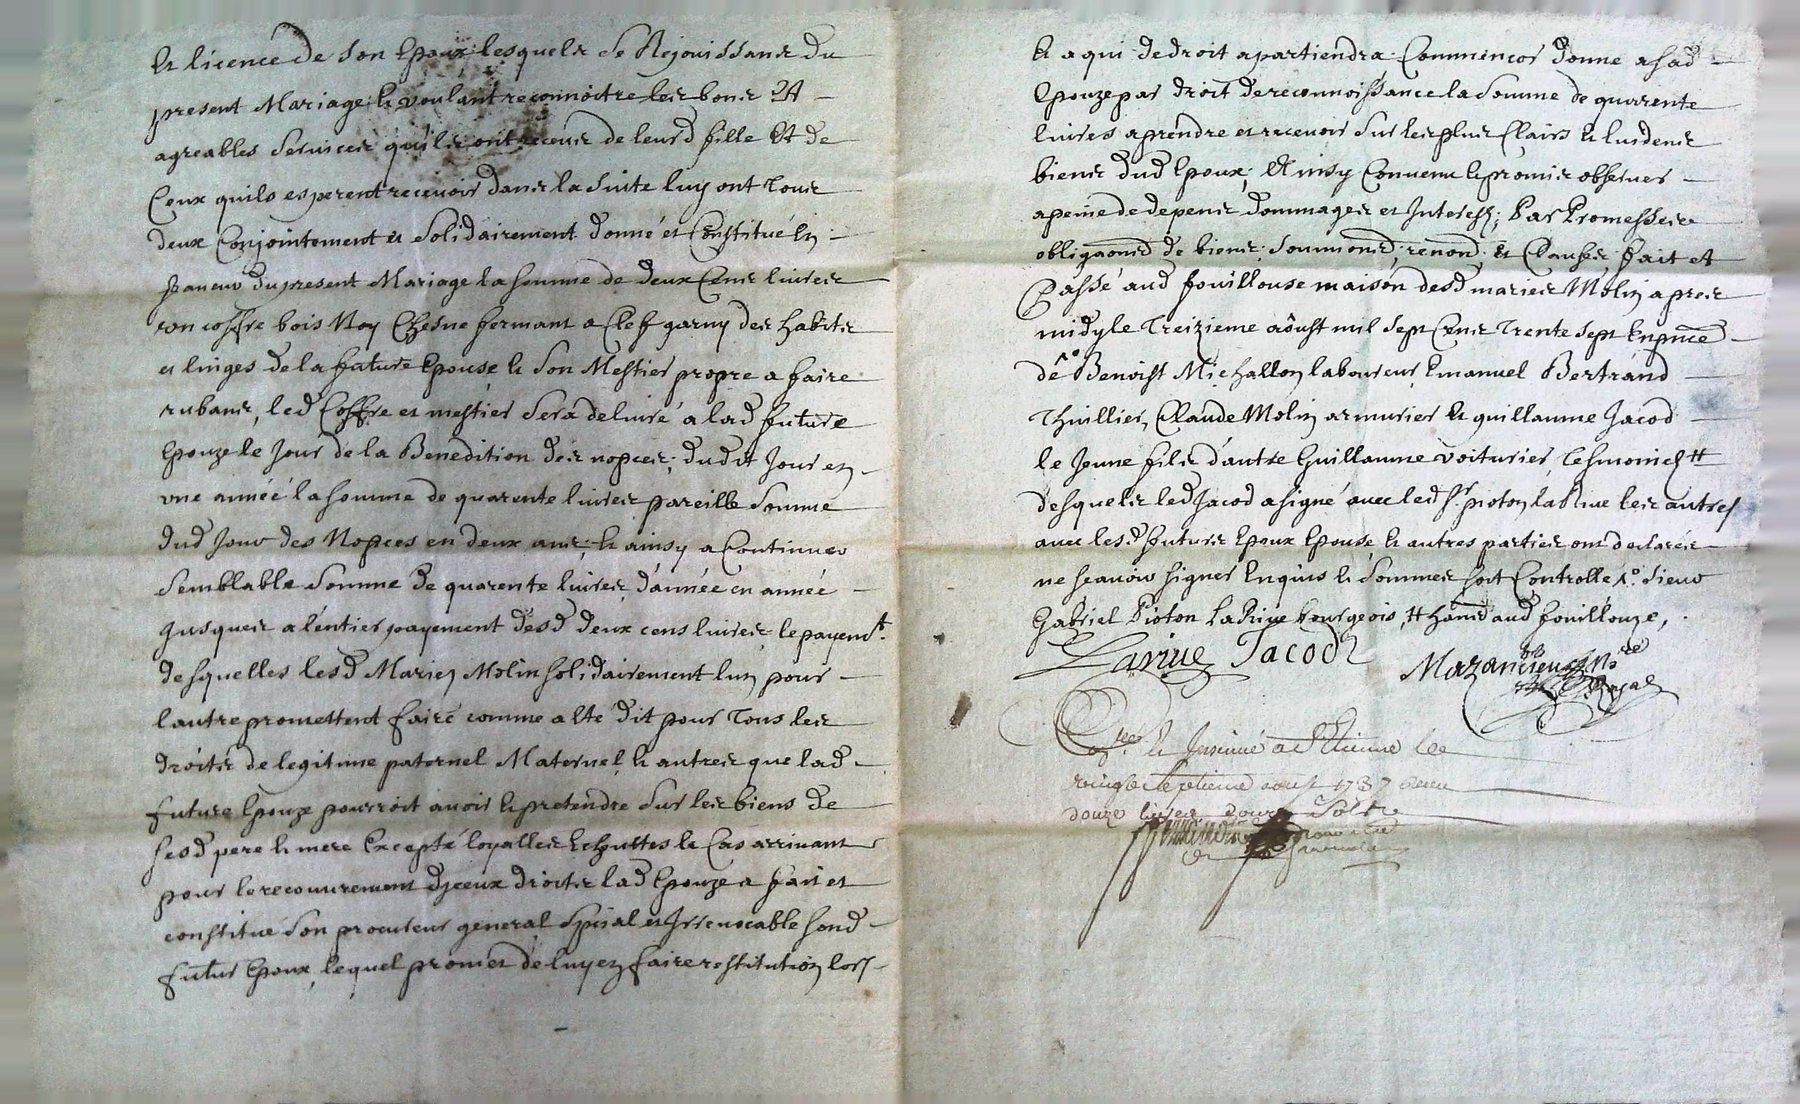 et licence de son Epoux lesquels se Rejouissans du
present Mariage et voulant reconnoitre les bons Et
agreables services qu'ils ont receus de leurd fille Et de
Ceux quils esperent recevoir dans la suite luy ont Tous
deux Conjointement et solidairement donné et Constitué En
faveur du present Mariage la somme de deux Cens livres
un coffre bois Noy Chesne fermant a Clef garny des habits
et linges de la future Epouse et son Mestier propre a faire
rubans, led Coffre et mestier sera delivré a lad future
Epouze le Jour de la Benedition des nopces, dudit Jour en
une année la somme de quarente livres pareille somme
dud Jour des Nopces en deux ans, et ainsy a Continuer
semblable somme de quarente livres d'année en année
jusques a l'entier payement desd deux cens livres, le payemt.
desquelles lesd Mariez Molin solidairement lun pour
lautre promettent faire comme a lté dit pour Tous les
droits de legitime paternel Maternel et autres que lad
future Epouze pourroit avoir et pretendre sur les biens de
sesd pere et mere Excepté loyalles Echuttes le Cas arrivant
pour le recouvrement d'jceux droits lad Epouze a fait et
constitué son procureur general spesial et Irrevocable sond
futur Epoux, lequel promet de luy en faire restitution lors
Et a qui de droit apartiendra Commencer donne a sad
Epouze par droit de reconnoissance la somme de quarente
livres a prendre et recevoir sur les plus Clairs et
biens dud Epoux, Et insy Convenu et promis observer
apeine de depens dommages et Interests; Par Promesses
obligaons de biens, soumions, renond, et Clauses, fait et
Passé aud fouillouse maison desd maries Molin apres
midy le Treizieme aôust mil sept Cens Trente sept En pnce
de Benoist Michallon laboureur, Emanuel Bertrand
Thuillier, Claude Molin armurier et guillaume Jacod
le Jeune fils d'autre Guillaume voiturier, tesmoins #
desquels led Jacod a signé avec led Sr. pioton larive les autres
avec lesd futurs Epoux Epouse et autres parties ont declarés
ne sçavoir signer Enquis et sommes soit Controllé, # sieur
Gabriel Pioton La Rive bourgeois, # hant aud fouillouze,
Larive Jacod Mazancieux Nre
Royal
Con. et Insinué a St Etienne le
vingt septieme aoust 1737 Receu
douze livres douze sols